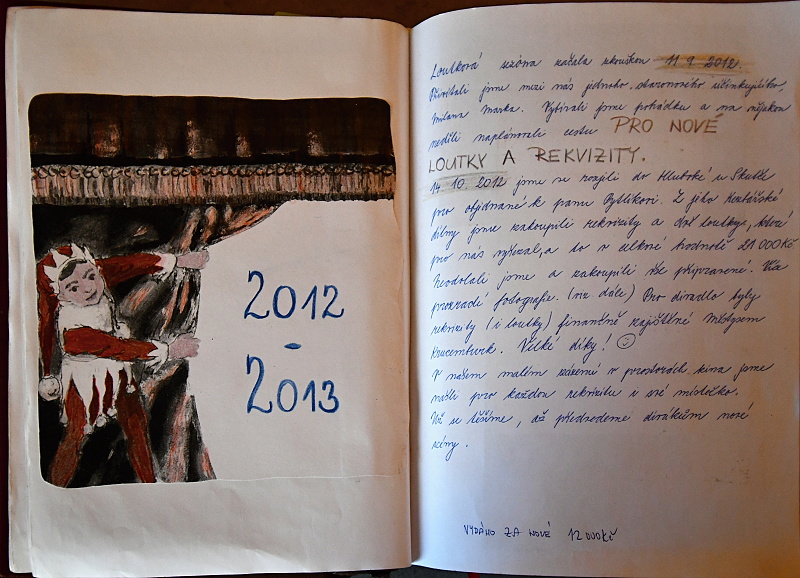 2012
-
2013
Loutková sezóna začala zkouškou 11. 9. 2012.
Přivítali jsme mezi nás jednoho staronového účinkujícího,
Milana Marka. Vybírali jsme pohádku a na nějakou
neděli naplánovali cestu PRO NOVÉ
LOUTKY A REKVIZITY.
14. 10. 2012 jsme se rozjeli do Hluboké u Skutče
pro objednané k panu Pytlíkovi. Z jeho
dílny jsme zakoupili rekvizity a dvě loutky, které
pro nás vyřezal, a to v celkové hodnotě 21 000 Kč
Neodolali jsme a zakoupili vše připravené. Vše
prozradí fotografie. (viz dále) Pro divadlo byly
rekvizity (i loutky) finančně zajištěné Městysem
Krucemburk. Veliké díky! ☺
V našem malém zázemí v prostorách kina jsme
našli pro každou rekvizitu i své místečko.
Už se těšíme, až předvedeme divákům nové
scény.
VYDÁNO ZA NOVÉ 12 000 Kč